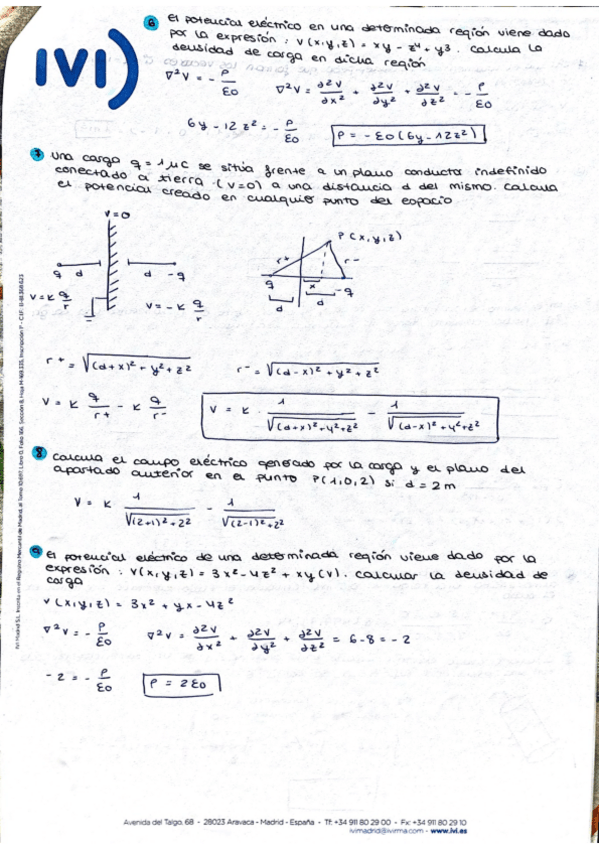 IVI
6 El potencial eléctrico en una determinada región viene dado
por la expresión: V(x,y,z) = xy - z⁴ + y3. Calcula la
densidad de carga en dicha región
∇²V = - ρ/ε0   ∇²V = ∂2V/∂x² + ∂2V/∂y² + ∂2V/∂z² = - ρ/ε0
6y - 12z² = - ρ/ε0   ρ = -ε0(6y - 12z²)
7 Una carga q = 1 μC se sitúa frente a un plano conductor indefinido
conectado a tierra (V=0) a una distancia d del mismo. Calcula
el potencial creado en cualquier punto del espacio.
V=0
P(x,y,z)
r+ r-
q d d -q
q x -q
d d
V = K q/r   V = -K q/r
r+ = √(d+x)² + y² + z²   r- = √(d-x)² + y² + z²
V = K q/r+ - K q/r-   V = K · 1/√(d+x)²+y²+z² - 1/√(d-x)²+y²+z²
8 Calcula el campo eléctrico generado por la carga y el plano del
apartado anterior en el punto P(1,0,2) si d = 2m
V = K 1/√(2+1)²+2² - 1/√(2-1)²+2²
9 El potencial eléctrico de una determinada región viene dado por la
expresión: V(x,y,z) = 3x² - 4z² + xy (V). Calcular la densidad de
carga
V(x,y,z) = 3x² + yx - 4z²
∇²V = - ρ/ε0   ∇²V = ∂2V/∂x² + ∂2V/∂y² + ∂2V/∂z² = 6 - 8 = -2
-2 = - ρ/ε0   ρ = 2ε0
Avenida del Talgo, 68 - 28023 Aravaca - Madrid - España - Tf: +34 911 80 29 00 - Fx: +34 911 80 29 10
ivimadrid@ivirma.com - www.ivi.es